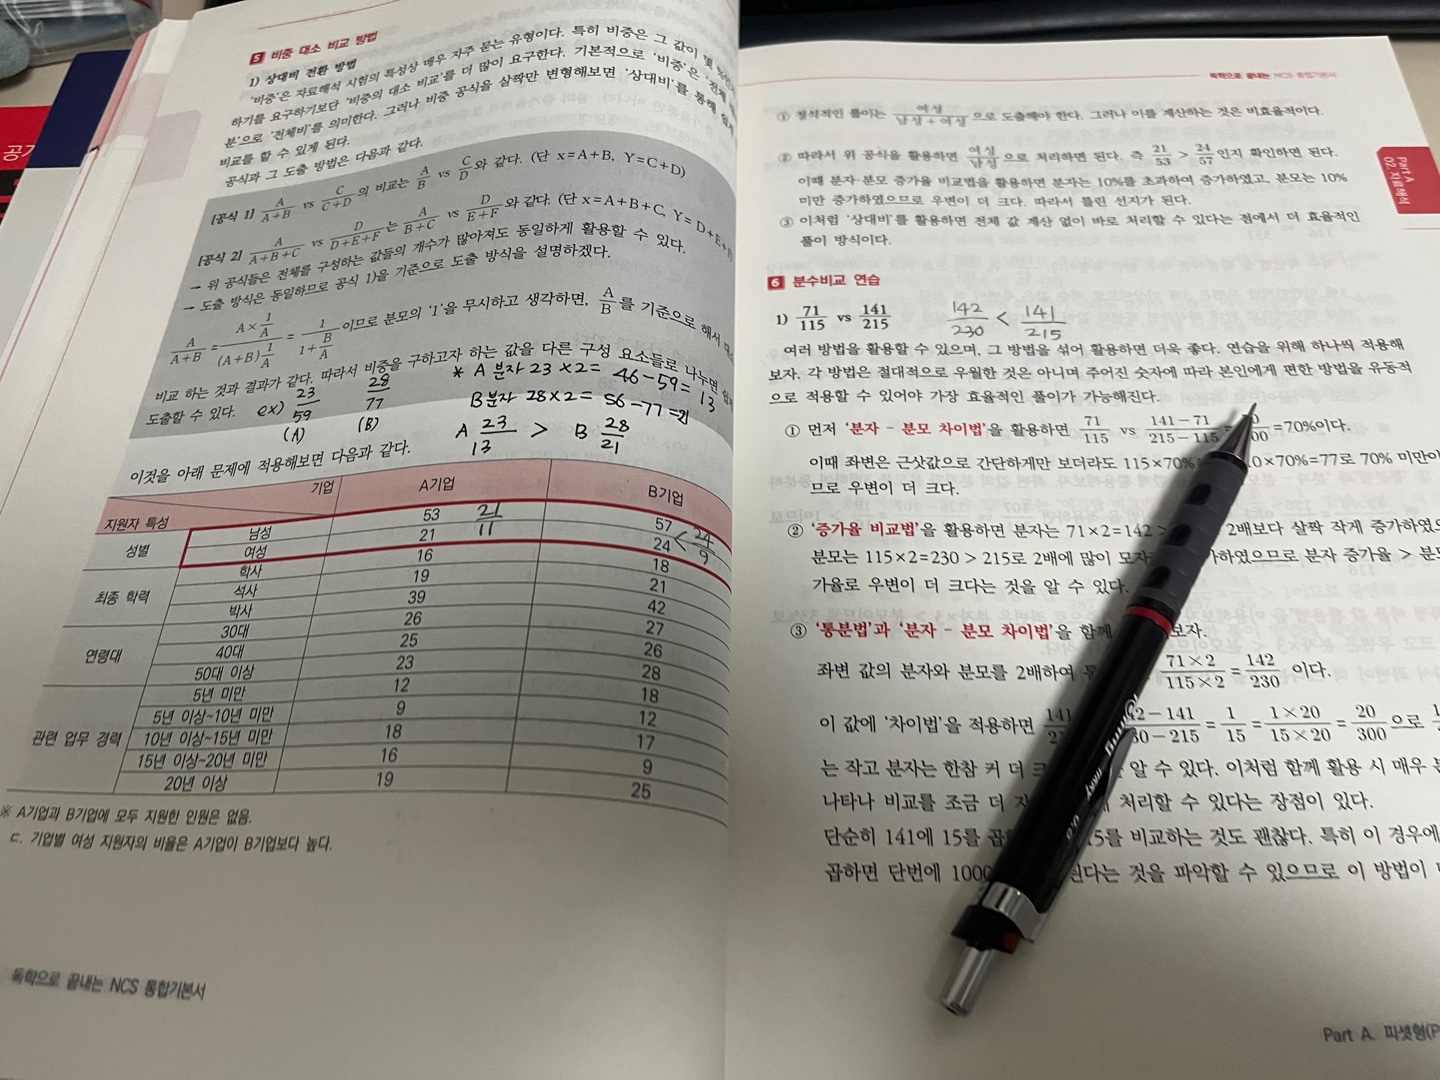 공기
5 비중 대소 비교 방법
1) 상대비 전환 방법
'비중'은 자료해석 시험의 특성상 매우 자주 묻는 유형이다. 특히 비중은 그 값이 몇
하기를 요구하기보단 '비중의 대소 비교'를 더 많이 요구한다. 기본적으로 '비중'은 '전체
분'으로 '전체비'를 의미한다. 그러나 비중 공식을 살짝만 변형해보면 '상대비'를 통해
비교를 할 수 있게 된다.
공식과 그 도출 방법은 다음과 같다.
[공식 1] A/A+B vs C/C+D의 비교는 A/B vs C/D와 같다. (단 x=A+B, Y=C+D)
[공식 2] A/A+B+C vs D/D+E+F는 A/B+C vs D/E+F와 같다. (단 x=A+B+C, Y=D+E+F)
→ 위 공식들은 전체를 구성하는 값들의 개수가 많아져도 동일하게 활용할 수 있다.
→ 도출 방식은 동일하므로 공식 1)을 기준으로 도출 방식을 설명하겠다.
A/A+B = A×1/A / (A+B)1/A = 1 / 1+B/A 이므로 분모의 '1'을 무시하고 생각하면, A/B를 기준으로 해서
비교 하는 것과 결과가 같다. 따라서 비중을 구하고자 하는 값을 다른 구성 요소들로 나누면
도출할 수 있다. ex) 23/59 (A) 28/77 (B)
* A 분자 23×2= 46-59= 13
B분자 28×2= 56-77=21
A 23/13 > B 28/21
이것을 아래 문제에 적용해보면 다음과 같다.
지원자 특성 기업 A기업 B기업
성별 남성 53 57
여성 21 24
21/11 < 24/9
최종 학력 학사 16 18
석사 19 21
박사 39 42
연령대 30대 26 27
40대 25 26
50대 이상 23 28
관련 업무 경력 5년 미만 12 18
5년 이상~10년 미만 9 12
10년 이상~15년 미만 18 17
15년 이상~20년 미만 16 9
20년 이상 19 25
※ A기업과 B기업에 모두 지원한 인원은 없음.
ㄷ. 기업별 여성 지원자의 비율은 A기업이 B기업보다 높다.
독학으로 끝내는 NCS 통합기본서
독학으로 끝내는 NCS 통합기본서
Part A
02. 자료해석
① 정석적인 풀이는 여성/남성+여성으로 도출해야 한다. 그러나 이를 계산하는 것은 비효율적이다.
② 따라서 위 공식을 활용하면 여성/남성으로 처리하면 된다. 즉 21/53 > 24/57인지 확인하면 된다.
이때 분자·분모 증가율 비교법을 활용하면 분자는 10%를 초과하여 증가하였고, 분모는 10%
미만 증가하였으므로 우변이 더 크다. 따라서 틀린 선지가 된다.
③ 이처럼 '상대비'를 활용하면 전체 값 계산 없이 바로 처리할 수 있다는 점에서 더 효율적인
풀이 방식이다.
6 분수비교 연습
1) 71/115 vs 141/215 142/230 < 141/215
여러 방법을 활용할 수 있으며, 그 방법을 섞어 활용하면 더욱 좋다. 연습을 위해 하나씩 적용해
보자. 각 방법은 절대적으로 우월한 것은 아니며 주어진 숫자에 따라 본인에게 편한 방법을 유동적
으로 적용할 수 있어야 가장 효율적인 풀이가 가능해진다.
① 먼저 '분자 - 분모 차이법'을 활용하면 71/115 vs 141-71/215-115 =70%이다.
이때 좌변은 근삿값으로 간단하게만 보더라도 115×70% 0×70%=77로 70% 미만이
므로 우변이 더 크다.
② '증가율 비교법'을 활용하면 분자는 71×2=142 > 2배보다 살짝 작게 증가하였으
분모는 115×2=230 > 215로 2배에 많이 모자 가하였으므로 분자 증가율 > 분모
가율로 우변이 더 크다는 것을 알 수 있다.
③ '통분법'과 '분자 - 분모 차이법'을 함께 보자.
좌변 값의 분자와 분모를 2배하여 통 71×2/115×2 = 142/230 이다.
이 값에 '차이법'을 적용하면 141 2-141/30-215 = 1/15 = 1×20/15×20 = 20/300 으로
는 작고 분자는 한참 커 더 크 을 알 수 있다. 이처럼 함께 활용 시 매우
나타나 비교를 조금 더 처리할 수 있다는 장점이 있다.
단순히 141에 15를 곱 15를 비교하는 것도 괜찮다. 특히 이 경우에
곱하면 단번에 1000 된다는 것을 파악할 수 있으므로 이 방법이
rOtring
tikky
Part A. 피셋형(P